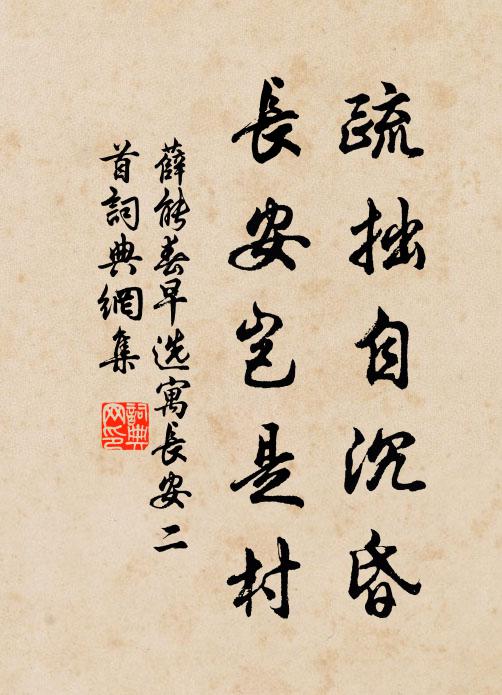 疏拙自沉昏
長安豈是村
薛能春早选寓長安二
首詞典網集
詞典网印